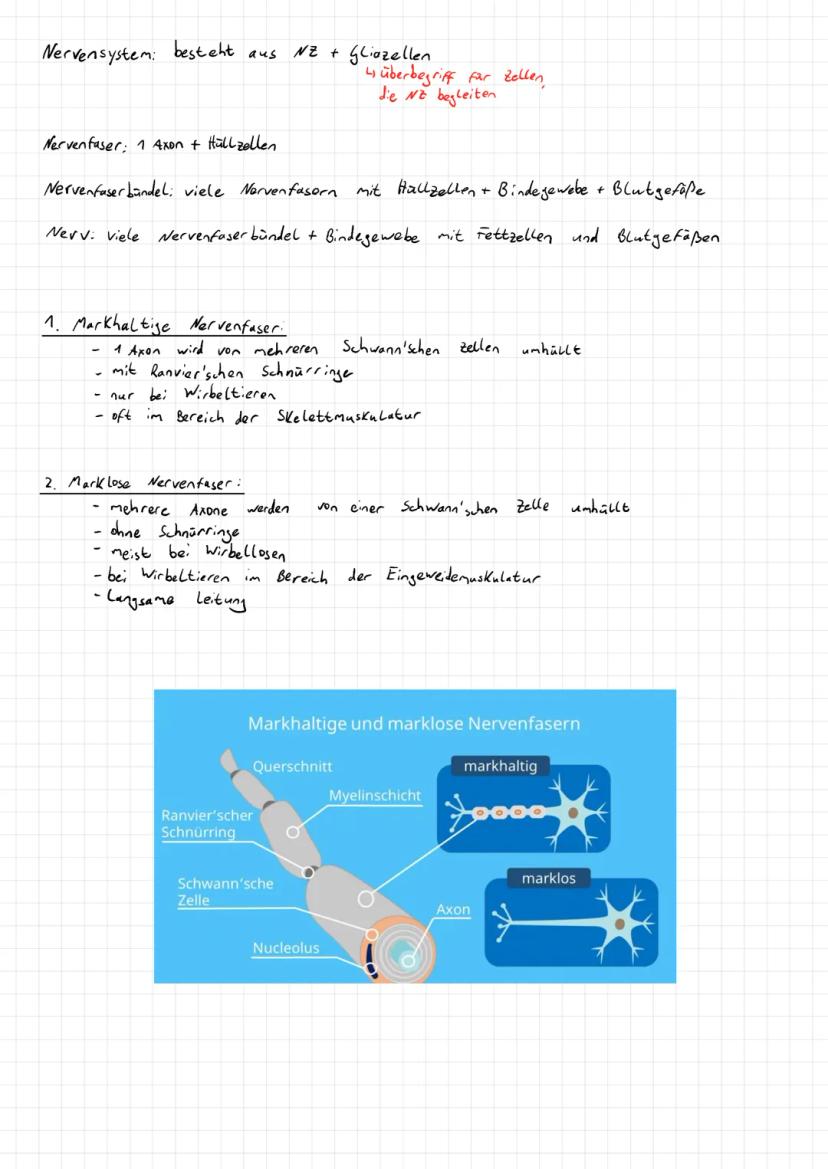 Nervensystem: besteht aus NZ + Gliazellen
↳ überbegriff für Zellen,
die NZ begleiten
Nervenfaser: 1 Axon + Hüllzellen
Nervenfaserbündel: viele Nervenfasern mit Hüllzellen + Bindegewebe + Blutgefäße
Nerv: viele Nervenfaserbündel + Bindegewebe mit Fettzellen und Blutgefäßen
1. Markhaltige Nervenfaser:
- 1 Axon wird von mehreren Schwann'schen Zellen umhüllt
- mit Ranvier'schen Schnürringe
- nur bei Wirbeltieren
- oft im Bereich der Skelettmuskulatur
2. Marklose Nervenfaser:
- mehrere Axone werden von einer Schwann'schen Zelle umhüllt
- ohne Schnürringe
- meist bei Wirbellosen
- bei Wirbeltieren im Bereich der Eingeweidemuskulatur
- langsame Leitung
Markhaltige und marklose Nervenfasern
Querschnitt
markhaltig
Myelinschicht
Ranvier'scher
Schnürring
Schwann'sche
Zelle
marklos
Axon
Nucleolus